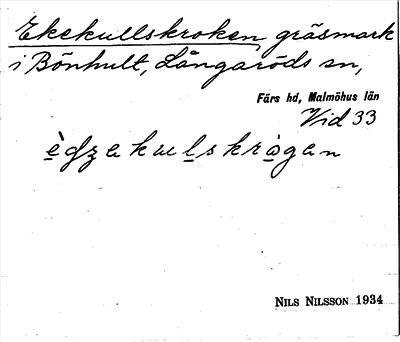 Ekekullskroken, gräsmark
i Bönhult, Långaröds sn,
Färs hd, Malmöhus län
Vid 33
è̱dʒakuḻskrà̱gan
NILS NILSSON 1934